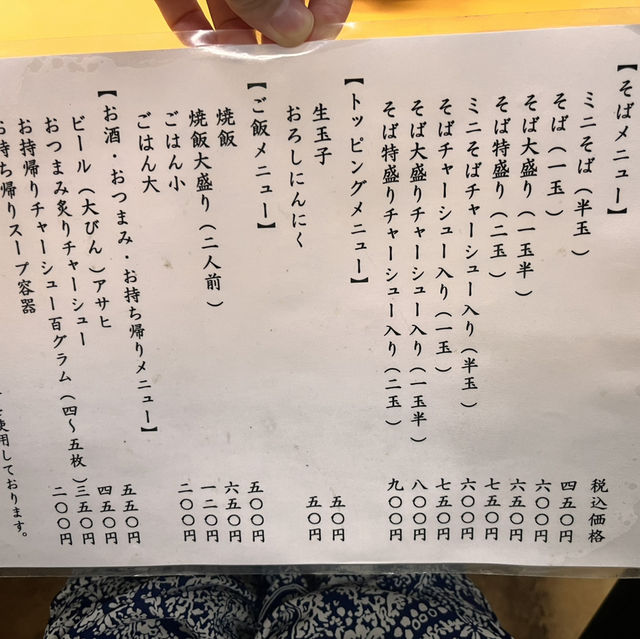 【そばメニュー】 税込価格
ミニそば（半玉） 四五〇円
そば（一玉） 六〇〇円
そば大盛り（一玉半） 六五〇円
そば特盛り（二玉） 七五〇円
ミニそばチャーシュー入り（半玉） 六〇〇円
そばチャーシュー入り（一玉） 七五〇円
そば大盛りチャーシュー入り（一玉半） 八〇〇円
そば特盛りチャーシュー入り（二玉） 九〇〇円
【トッピングメニュー】
生玉子 五〇円
おろしにんにく 五〇円
【ご飯メニュー】
焼飯 五〇〇円
焼飯大盛り（二人前） 六五〇円
ごはん小 一二〇円
ごはん大 二〇〇円
【お酒・おつまみ・お持ち帰りメニュー】
ビール（大びん）アサヒ 五五〇円
おつまみ炙りチャーシュー 四五〇円
お持帰りチャーシュー百グラム（四〜五枚） 三五〇円
お持ち帰りスープ容器 二〇〇円
使用しております。